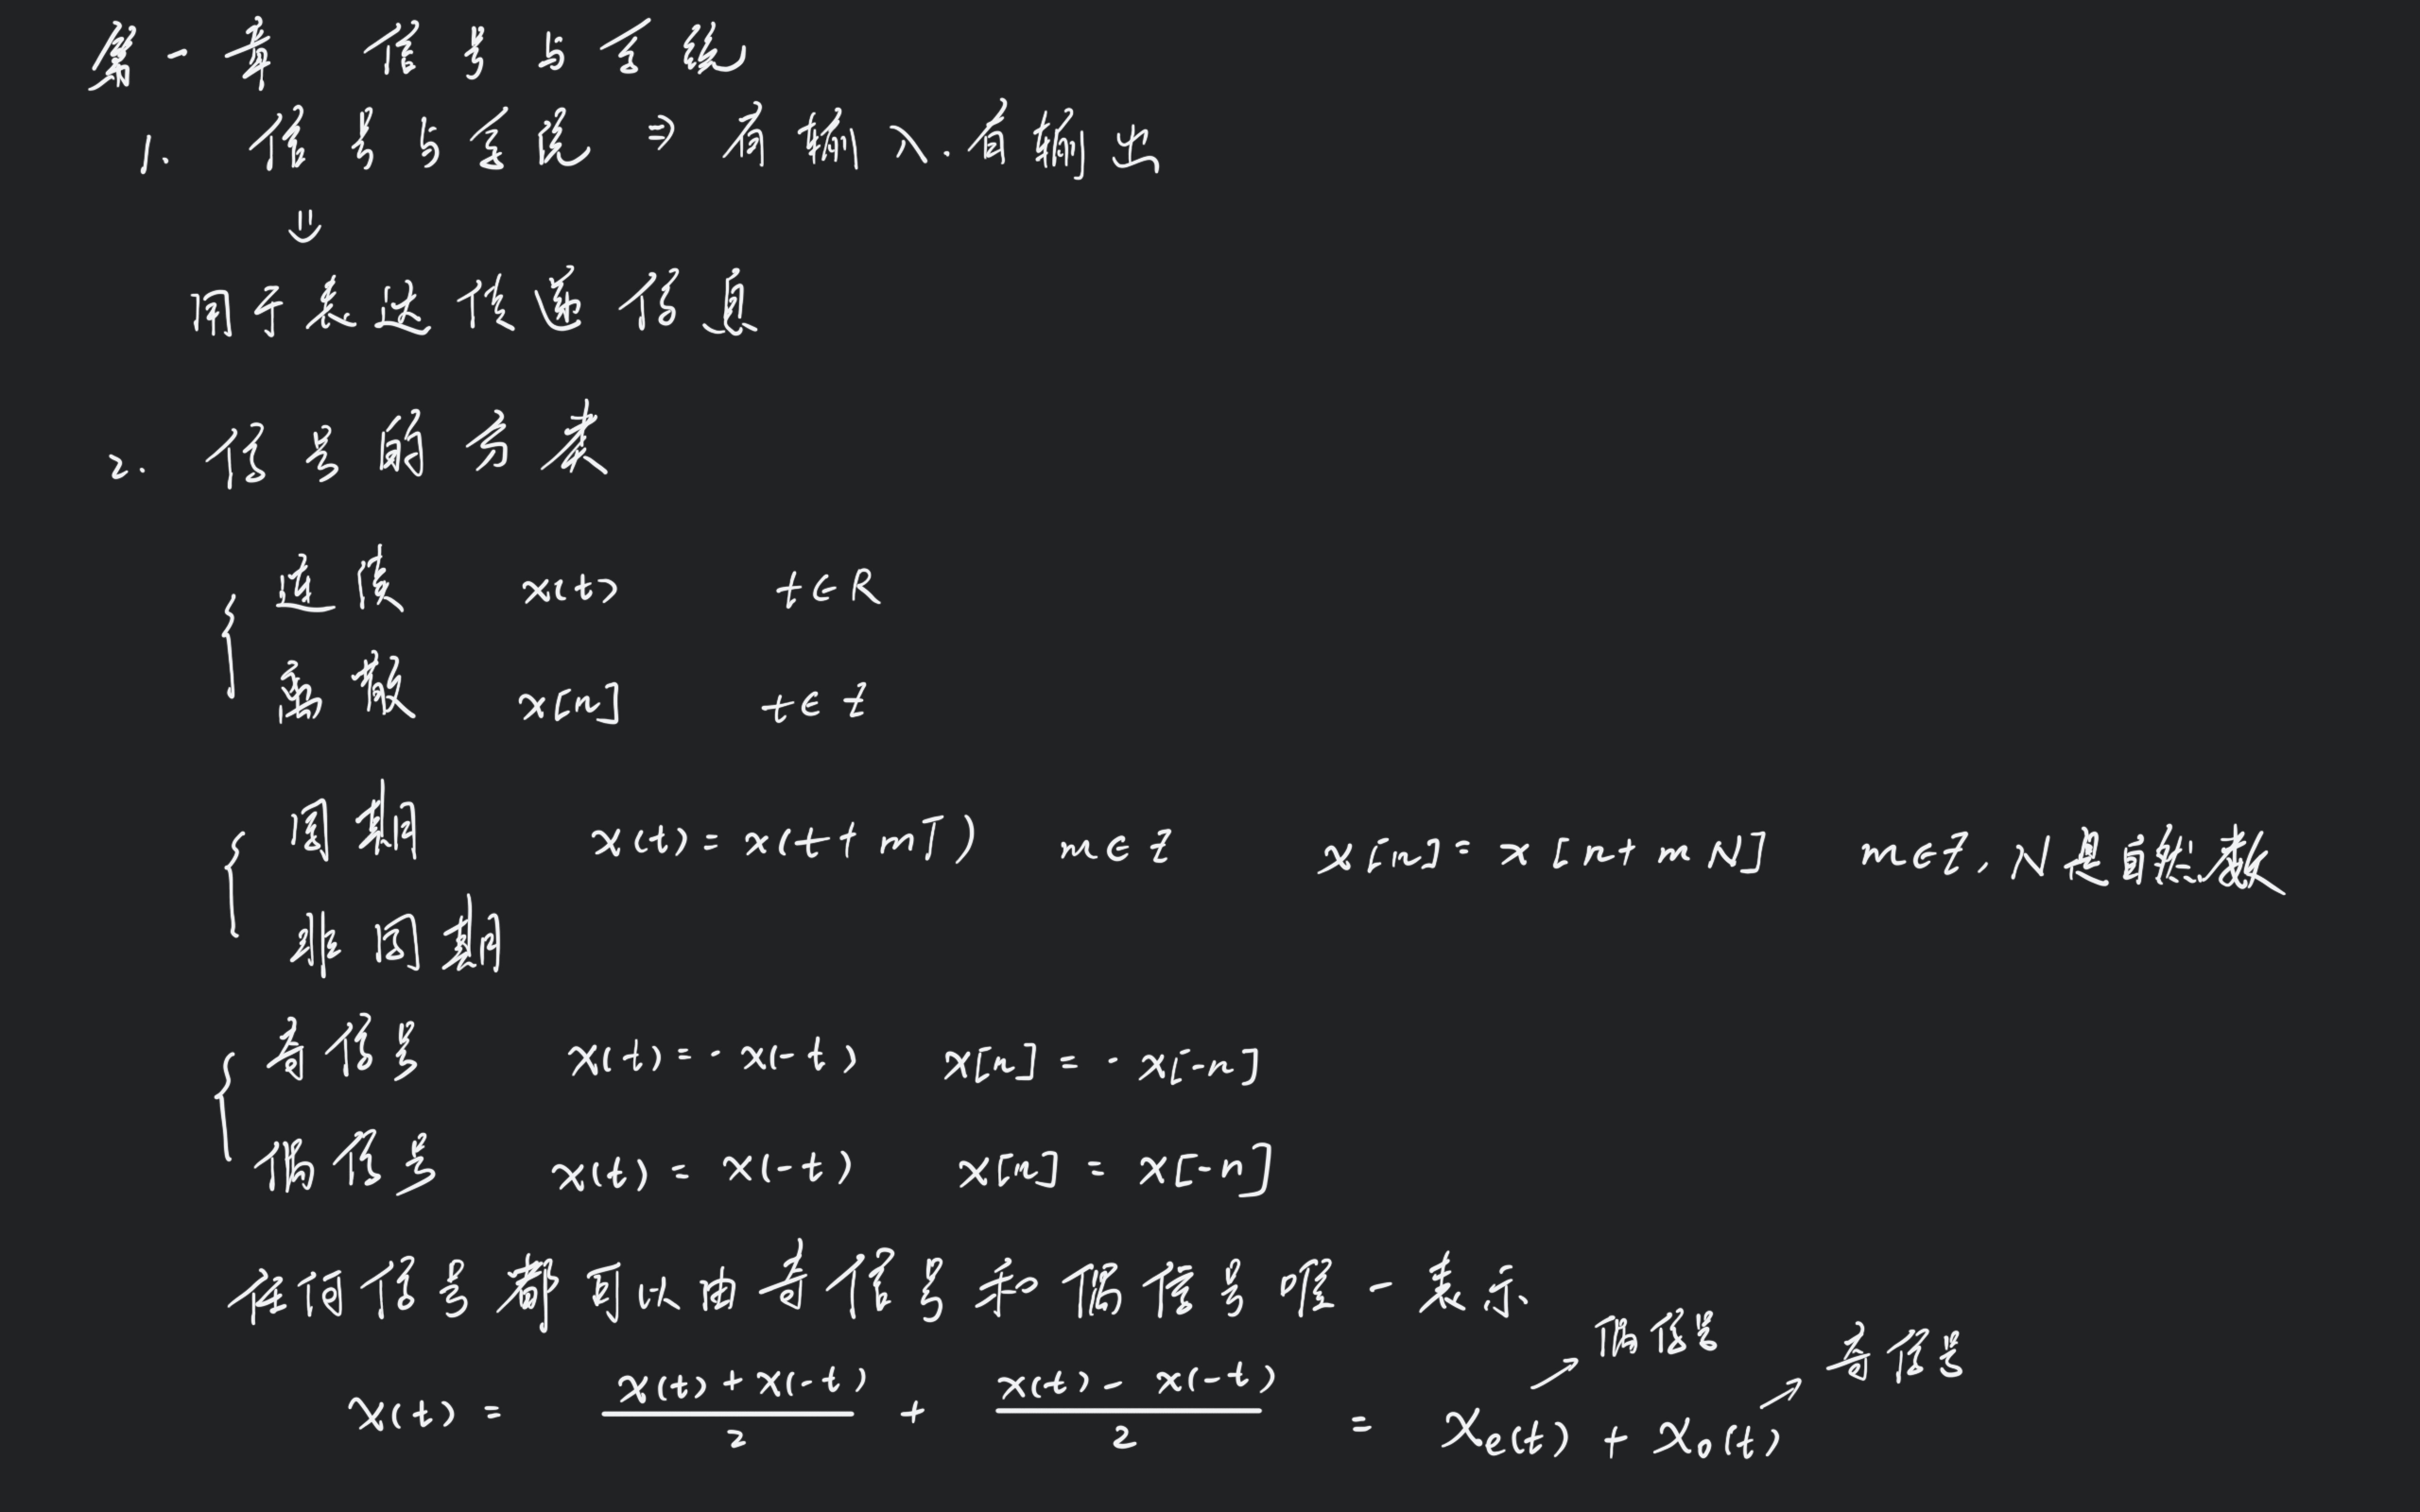 第一章 信号与系统
1. 信号与系统 ⇒ 有输入.有输出
⇓
用于表达传递信息
2. 信号的分类
连续 x(t) t∈R
离散 x[n] t∈Z
周期 x(t) = x(t+mT) m∈Z x[n] = x[n+mN] m∈Z, N是自然数
非周期
奇信号 x(t) = -x(-t) x[n] = -x[-n]
偶信号 x(t) = x(-t) x[n] = x[-n]
任何信号都可以由奇信号和偶信号唯一表示
x(t) = (x(t)+x(-t))/2 + (x(t)-x(-t))/2 = xₑ(t) + x₀(t)
→偶信号 →奇信号